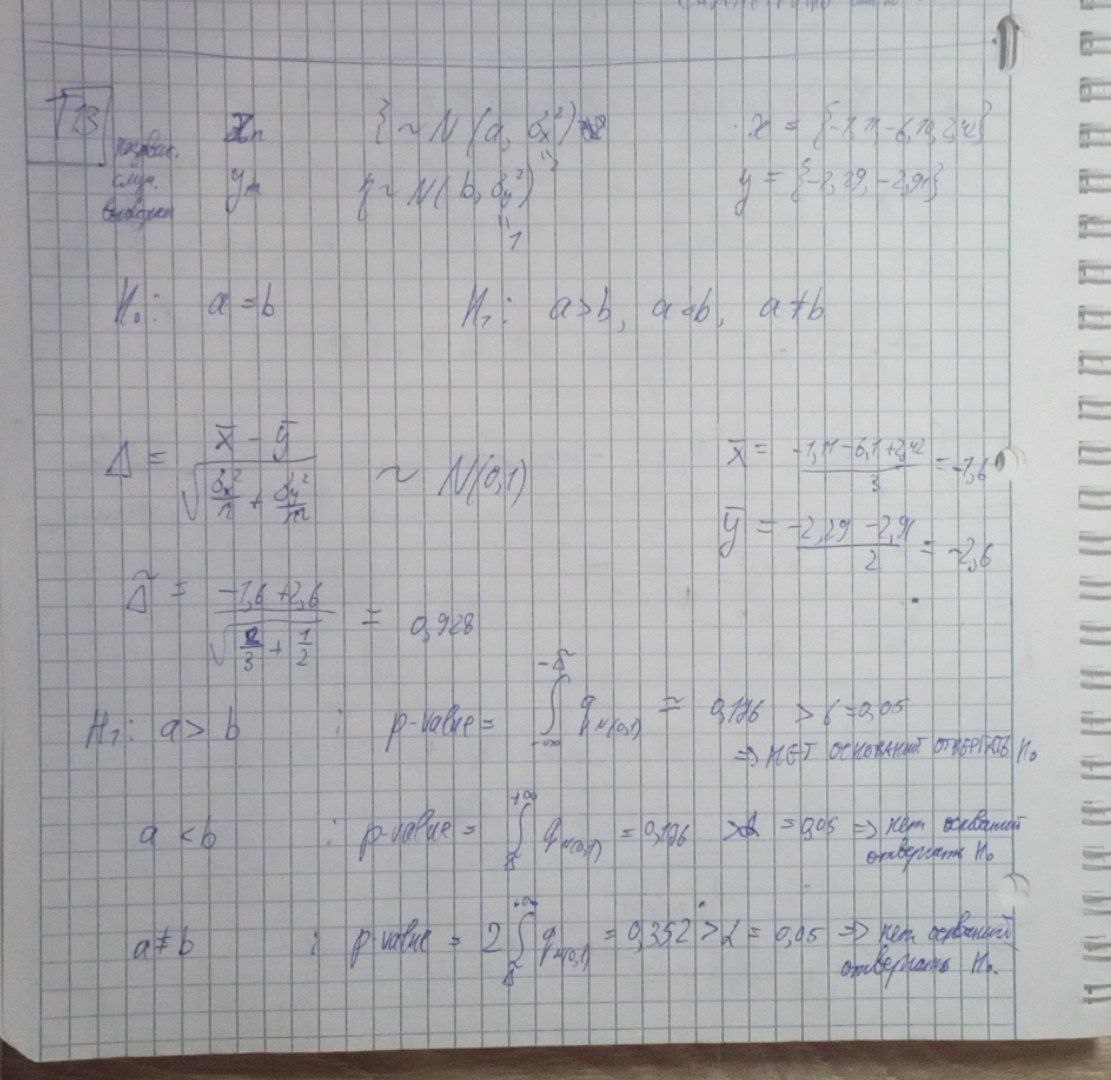 T13
независ. случ. выборки
x_n ξ ~ N(a, σ_x²) x = {-1,11, -6,10, 2,42}
"2
y_m η ~ N(b, σ_y²) y = {-2,29, -2,91}
"1
H₀: a = b H₁: a > b, a < b, a ≠ b
Δ = (x̄ - ȳ) / √(σ_x²/n + σ_y²/m) ~ N(0,1)
x̄ = (-1,11 - 6,1 + 2,42) / 3 = -1,6
ȳ = (-2,29 - 2,91) / 2 = -2,6
Δ̃ = (-1,6 + 2,6) / √(2/3 + 1/2) = 0,928
H₁: a > b : p-value = ∫_{-∞}^{-Δ̃} q_{N(0,1)} = 0,176 > = 0,05
⇒ НЕТ ОСНОВАНИЙ ОТВЕРГАТЬ H₀
a < b : p-value = ∫_{Δ̃}^{+∞} q_{N(0,1)} = 0,176 > α = 0,05 ⇒ нет оснований
отвергать H₀
a ≠ b : p-value = 2 ∫_{Δ̃}^{+∞} q_{N(0,1)} = 0,352 > α = 0,05 ⇒ нет оснований
отвергать H₀.